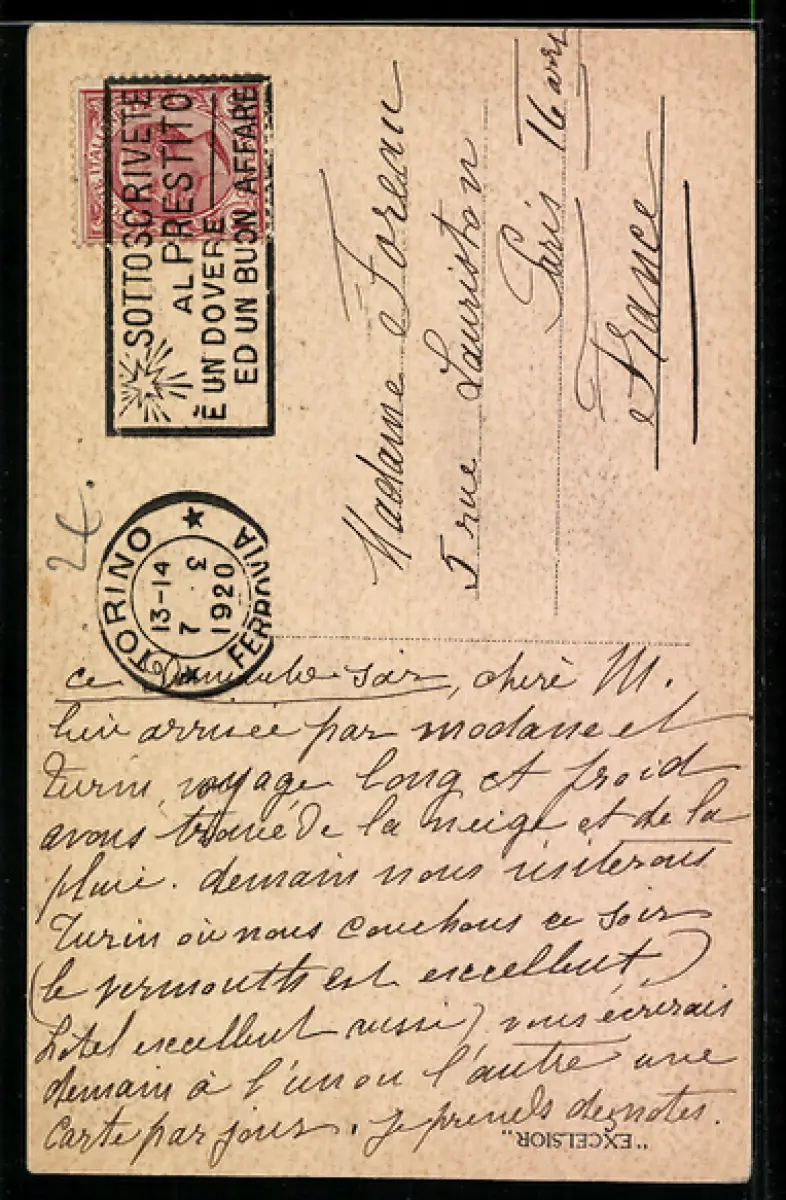 SOTTOSCRIVETE
AL PRESTITO
È UN DOVERE
ED UN BUON AFFARE
TORINO
13-14
7 . 3
1920
FERROVIA
2€.
Madame Foreau
rue Lauriston
Paris 16 arr
France
ce soir, chère M.
bien arrivée par modane et
Turin, voyage long et froid
avons trouvé de la neige et de la
pluie. demain nous visiterons
Turin où nous couchons ce soir
(le vermouth est excellent,
hotel excellent aussi) vous écrirais
demain à l'un ou l'autre une
carte par jour. je prends des notes.
"EXCELSIOR"